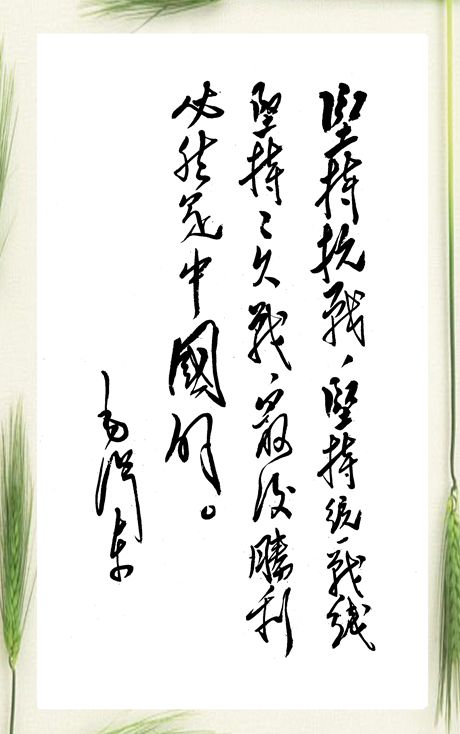 堅持抗戰、堅持統一戰綫
堅持持久戰、最後勝利
必然是中國的。
毛澤東